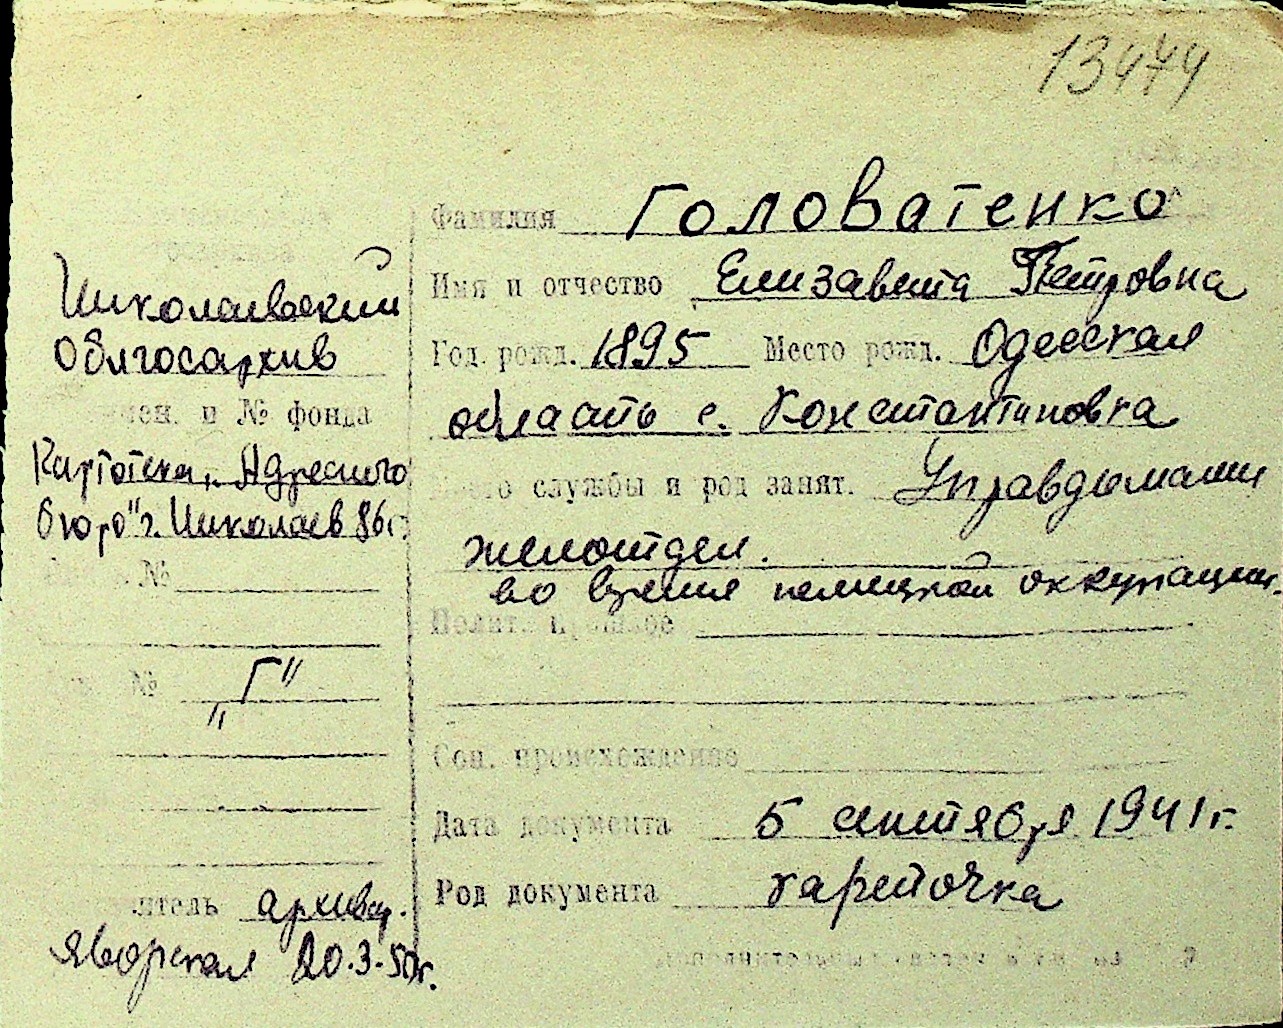 13474
Фамилия Головатенко
Имя и отчество Елизавета Петровна
Год. рожд. 1895 Место рожд. Одесская
область с. Константиновка
службы и род занят. Управдомами
желотдел.
во время немецкой оккупации.
Полит. прошлое
Соц. происхождение
Дата документа 5 сентября 1941 г.
Род документа карточка
Николаевский
Облгосархив
и № фонда
Картотека „Адресного
бюро" г. Николаев
№
№ „Г"
архивар.
Яворская 20.3.50г.